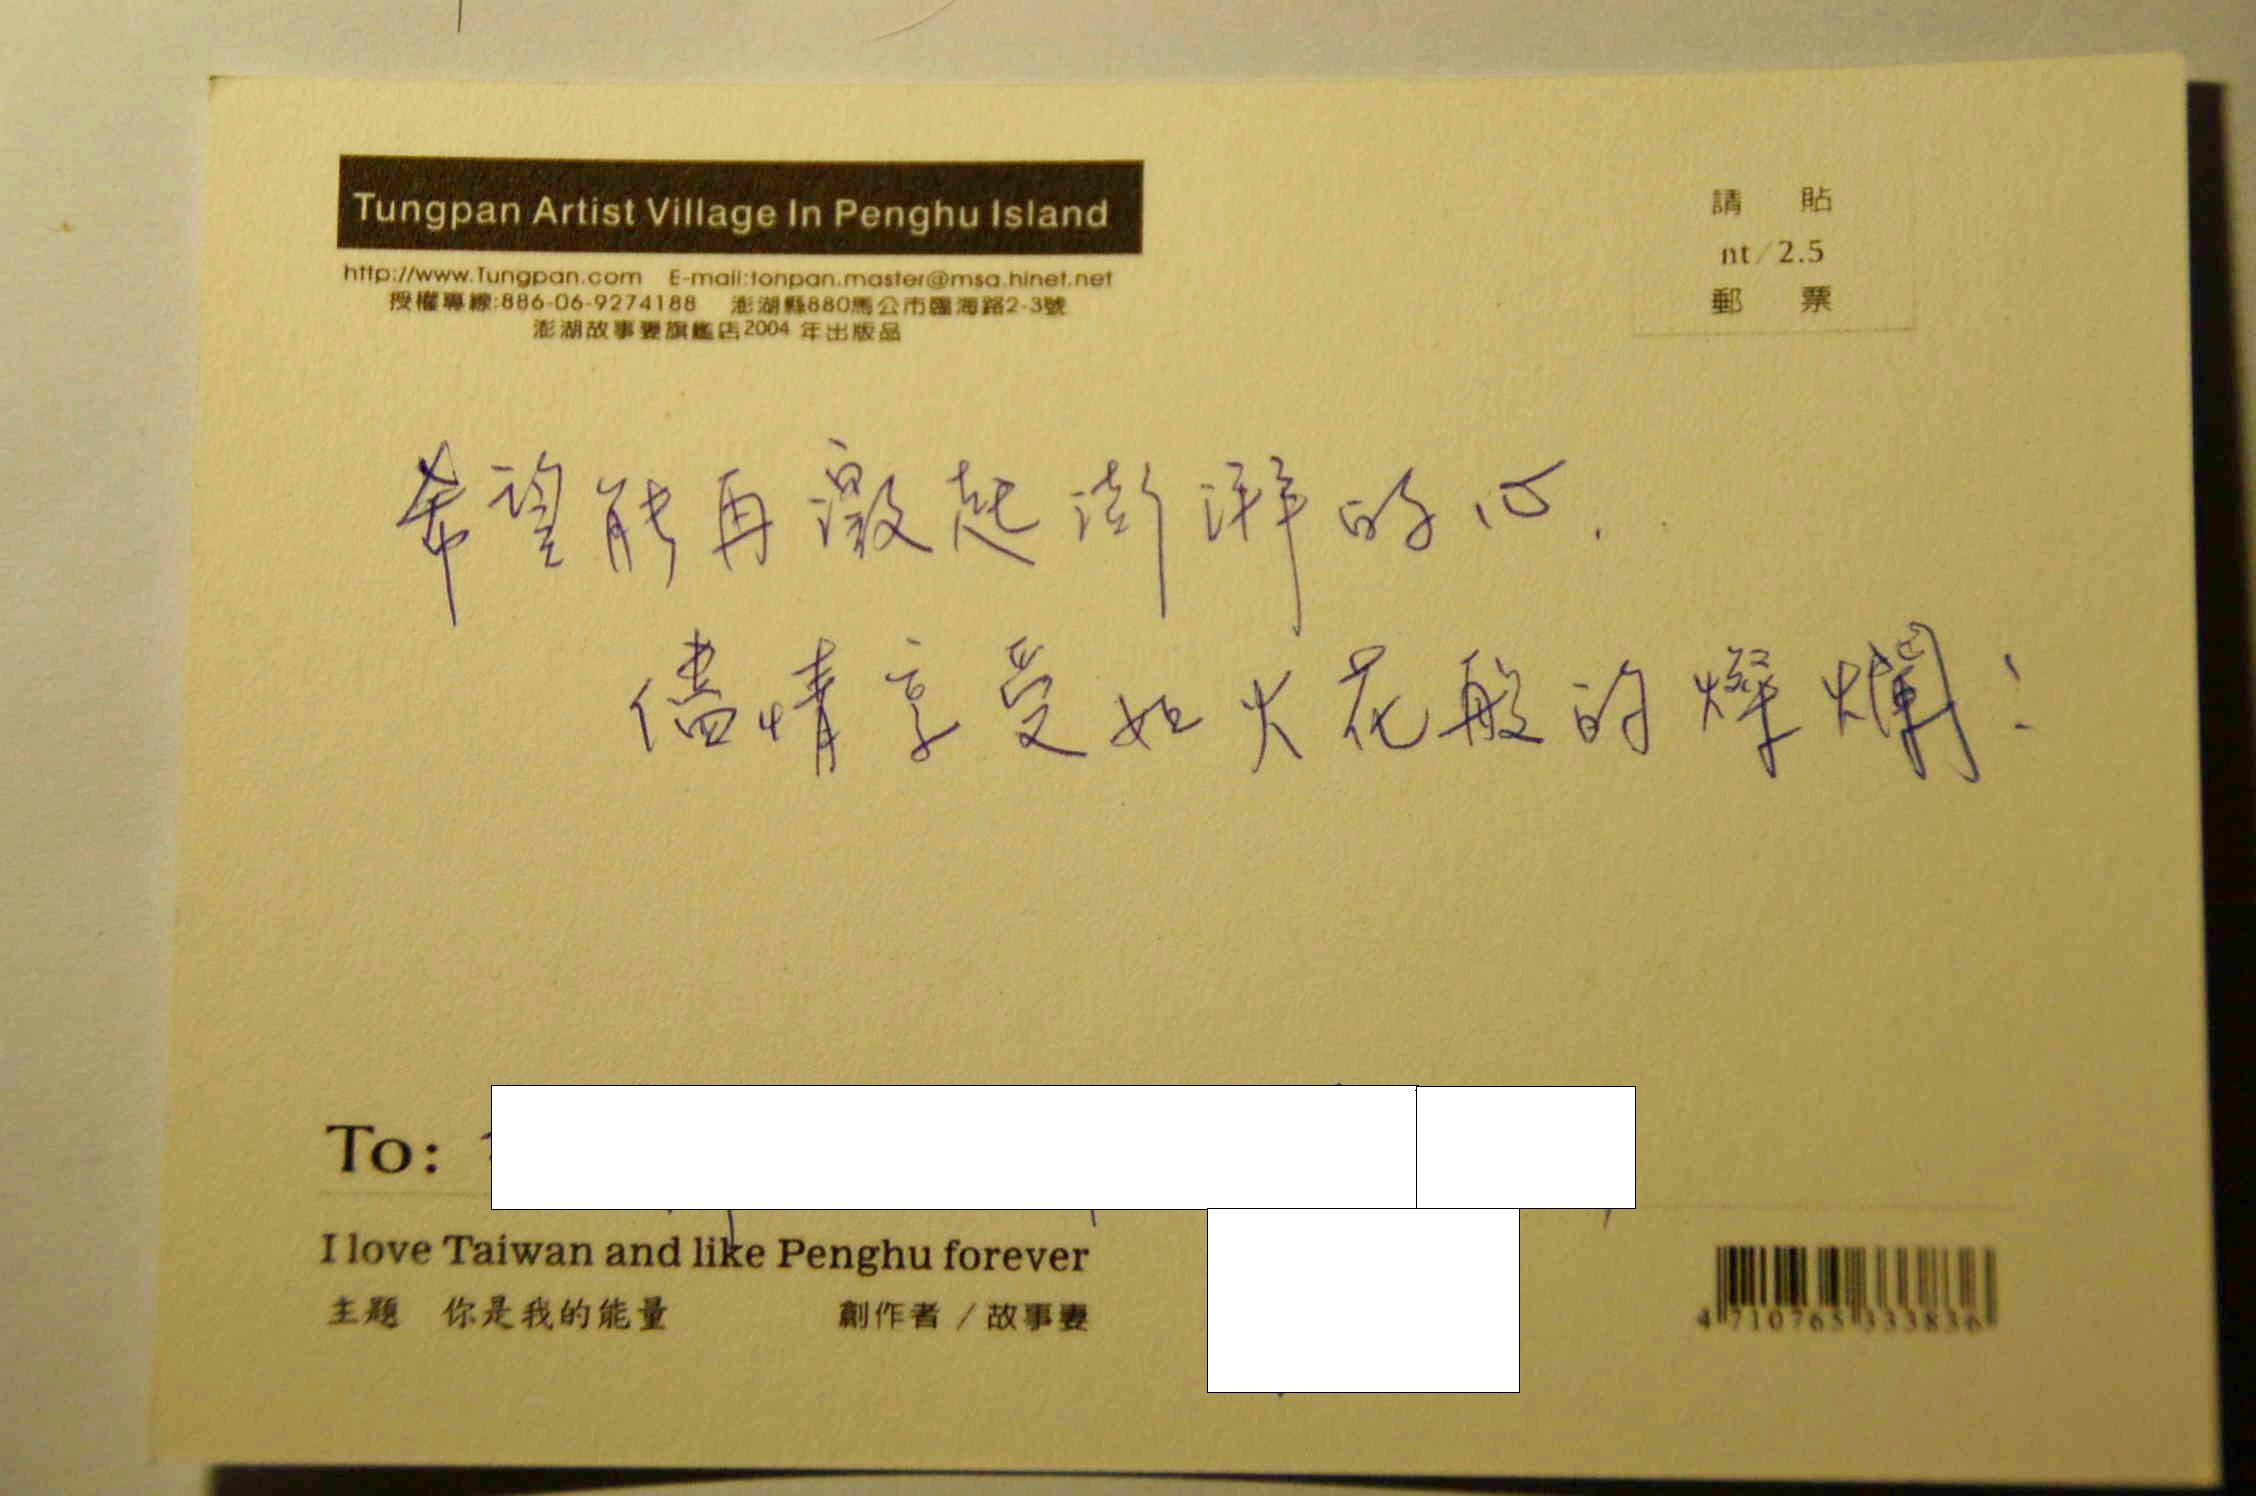 Tungpan Artist Village In Penghu Island
http://www.Tungpan.com E-mail:tonpan.master@msa.hinet.net
授權專線:886-06-9274188 澎湖縣880馬公市臨海路2-3號
澎湖故事妻旗艦店2004 年出版品
請 貼
nt/2.5
郵 票
希望能再激起澎湃的心.
儘情享受如火花般的燦爛!
To:
I love Taiwan and like Penghu forever
主題 你是我的能量 創作者 / 故事妻
4 710765 333836